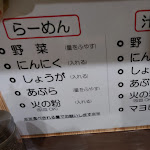 らーめん
野菜 (量をふやす)
にんにく (入れる)
しょうが (入れる)
あぶら (量をふやす)
火の粉 (入れる)
汁
野
に
し
あ
火の
マヨ